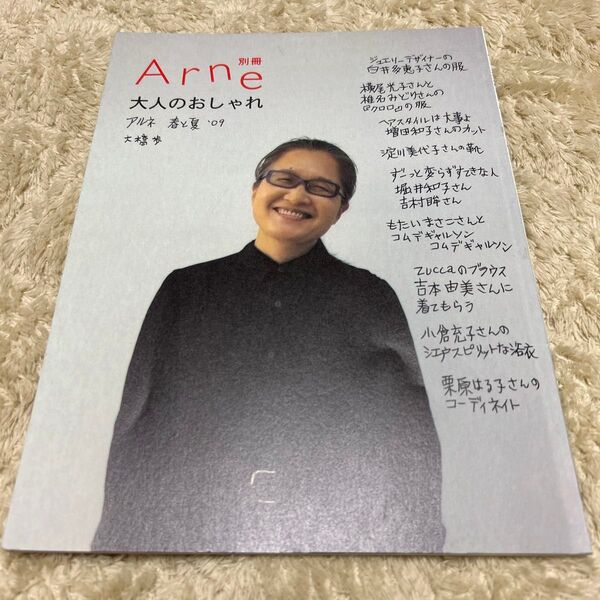 別冊
Arne
大人のおしゃれ
アルネ 春と夏 '09
大橋歩
ジュエリーデザイナーの
白井多恵子さんの服
横尾光子さんと
椎名みどりさんの
『クロロ』の服
ヘアスタイルは大事よ
増田和子さんのカット
淀川美代子さんの靴
ずーっと変らずすてきな人
堀井和子さん
吉村眸さん
もたいまさこさんと
コムデギャルソン
コムデギャルソン
zuccaのブラウス
吉本由美さんに
着てもらう
小倉充子さんの
江戸スピリットな浴衣
栗原はる子さんの
コーディネイト